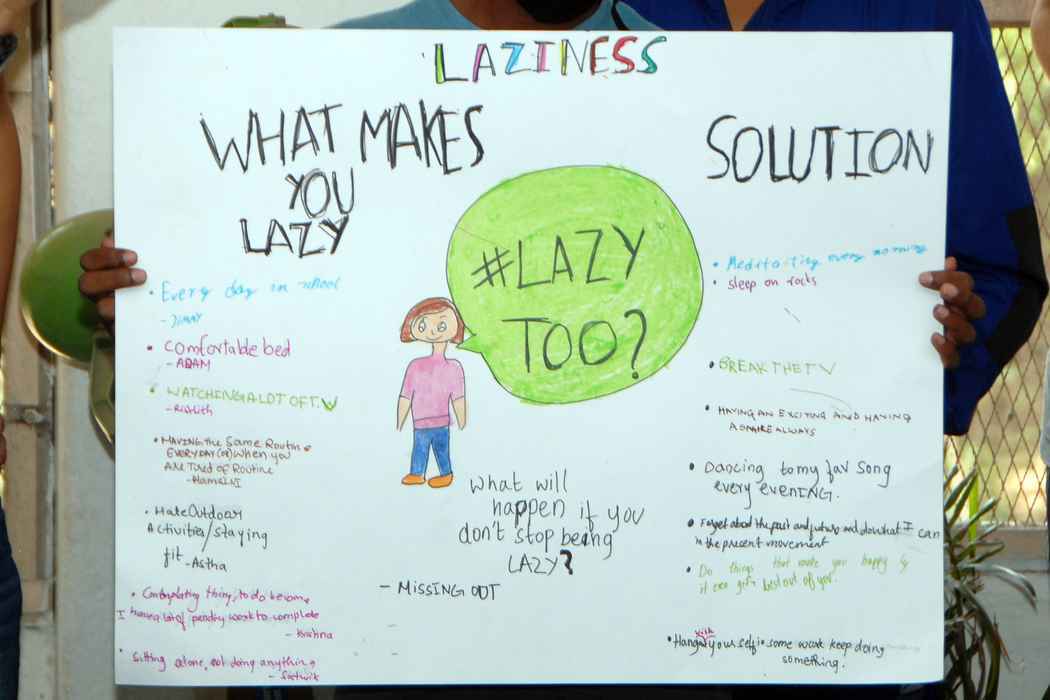 LAZINESS
WHAT MAKES
YOU
LAZY
• Every day in school
- JIMMY
• Comfortable bed
- ADAM
• WATCHING A LOT OF T.V
- Rishith
• HAVING the Same Routine
EVERYDAY (OR) When you
ARE Tired of Routine
- HAMSINI
• Hate Outdoor
Activities/staying
fit - Astha
• Contemplating things to do because
I have a lot of pending work to complete
- Krishna
• Sitting alone, not doing anything
- Saatwik
#LAZY
TOO?
What will
happen if you
don't stop being
LAZY?
- MISSING OUT
SOLUTION
• Meditating every morning
• sleep on rocks
• BREAK THE TV
• HAVING AN EXCITING AND HAVING
ALWAYS
• Dancing to my fav song
every EVENING.
• Forget about the past and future and do what I can
in the present movement
• Do things that make you happy &
it can get best out of you.
• Hang with yourself in some work keep doing
something.